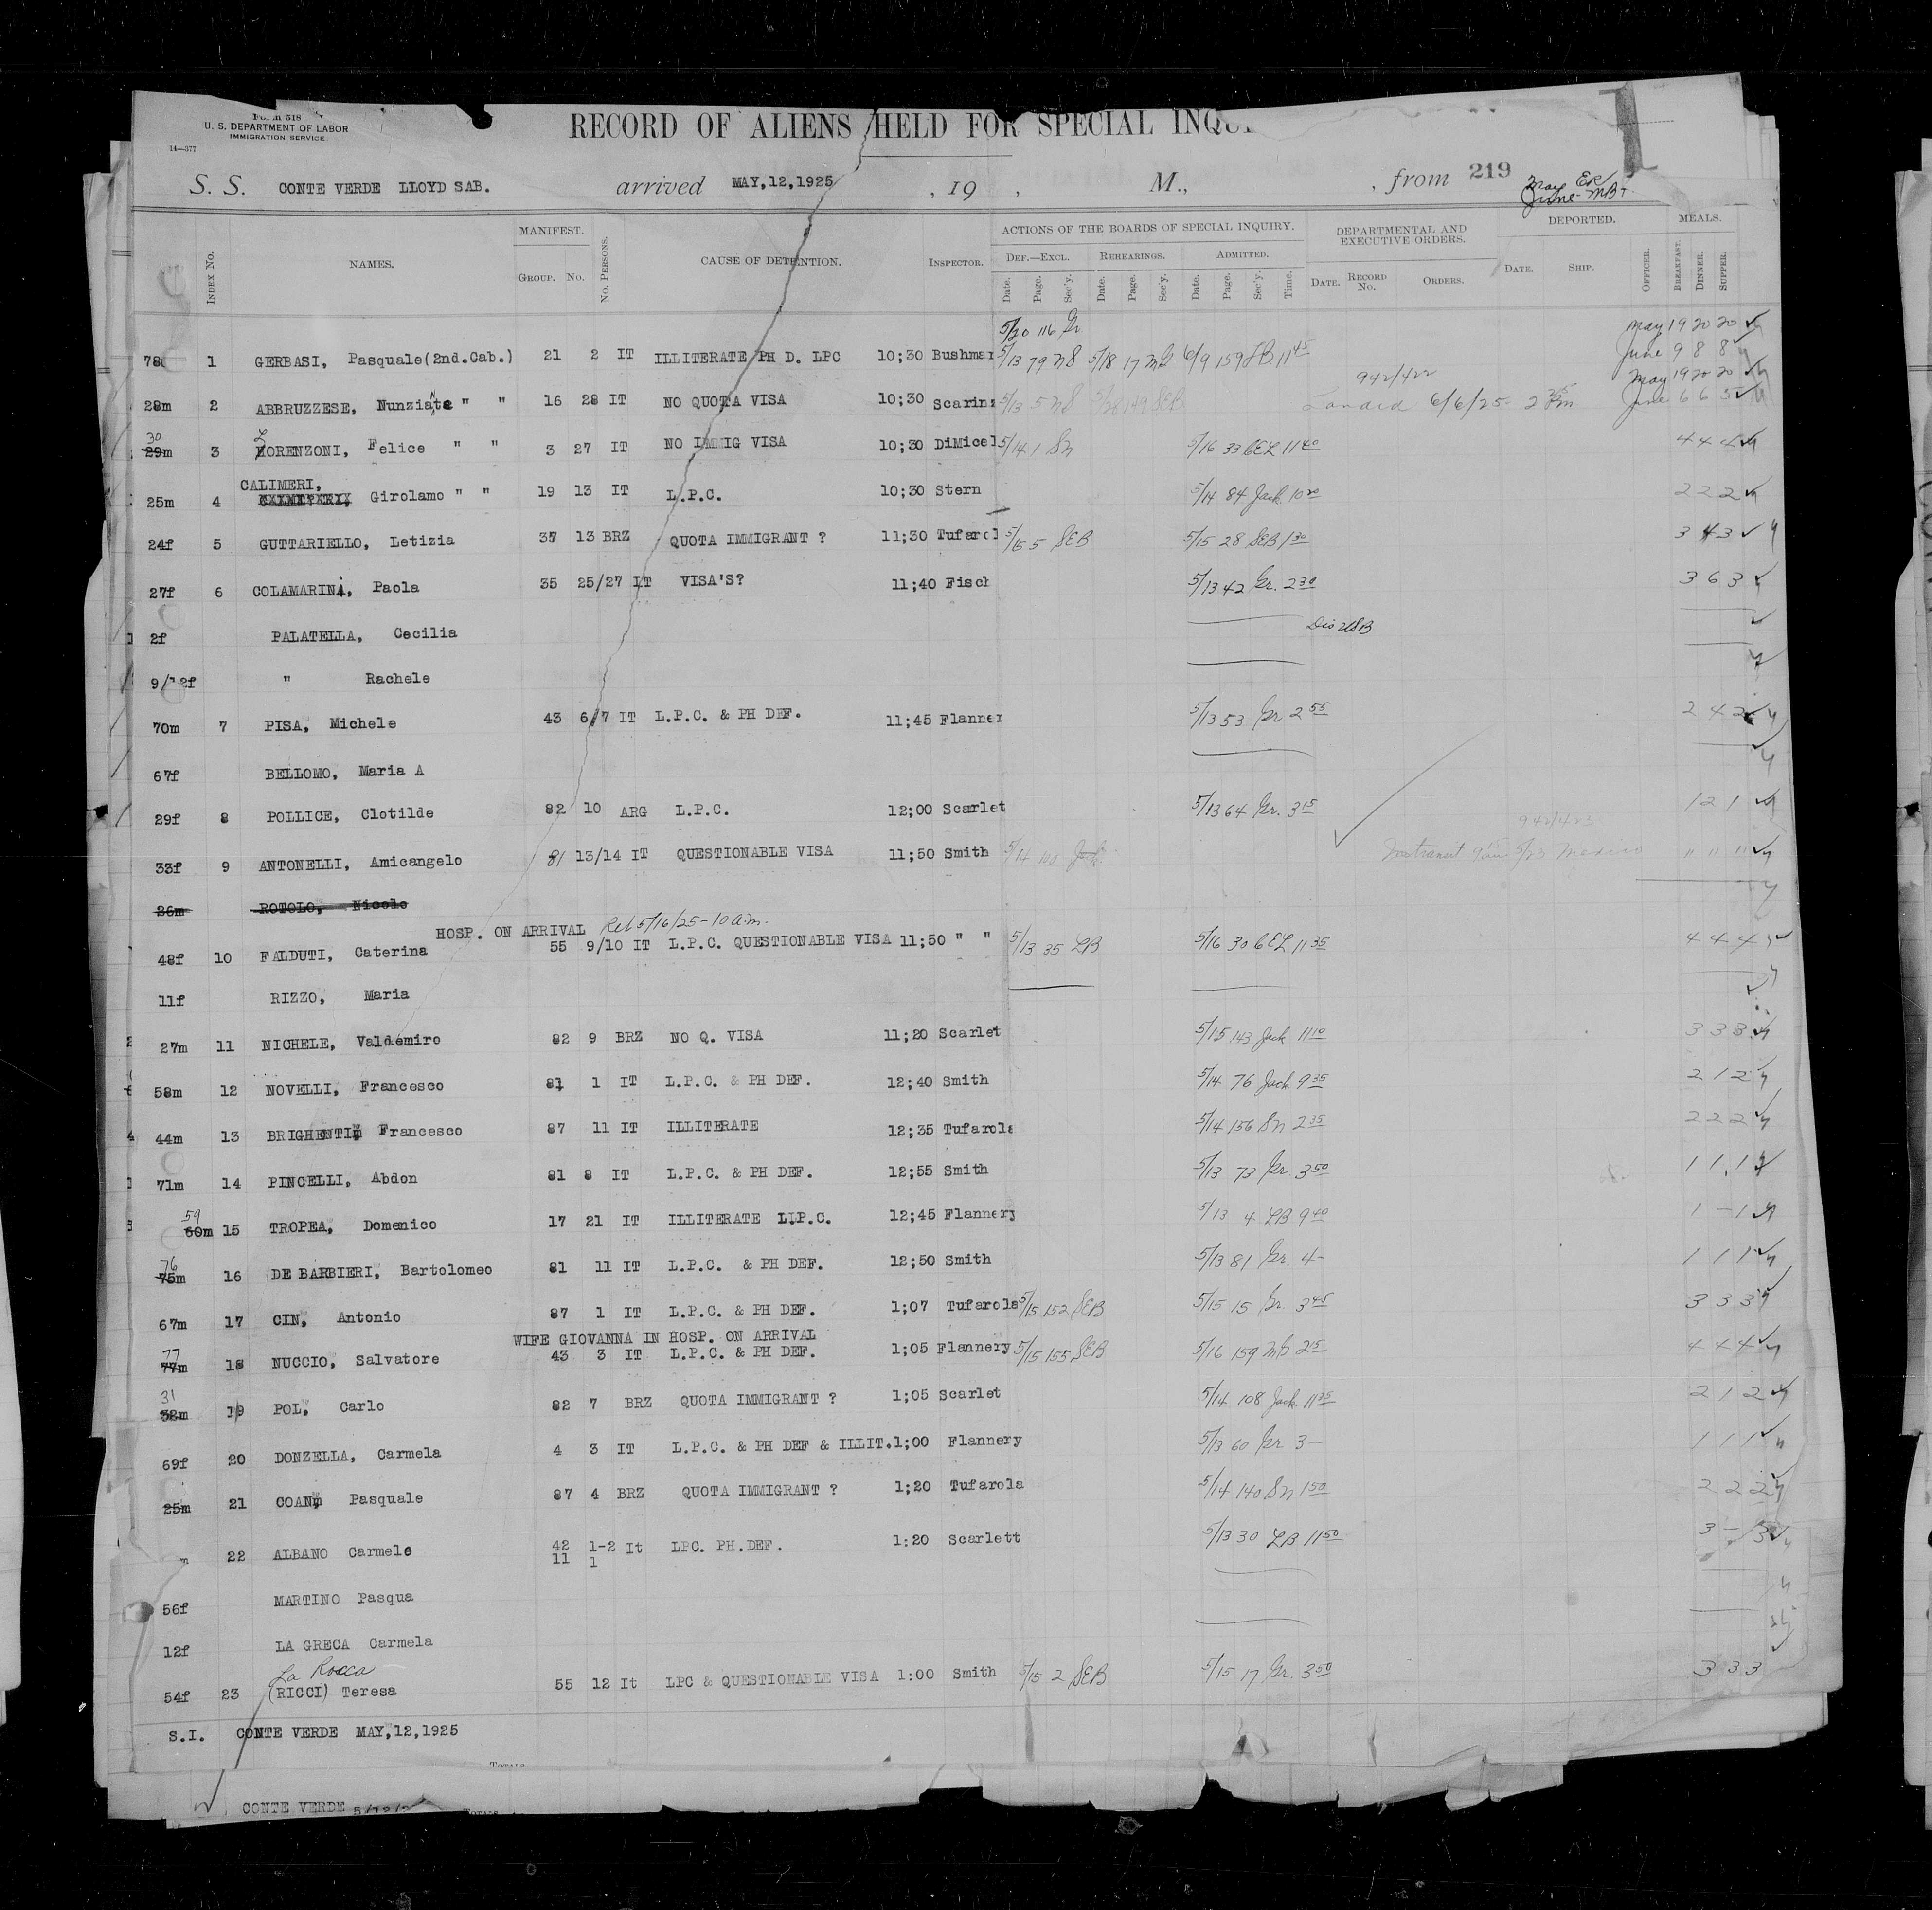 Form 518
U. S. DEPARTMENT OF LABOR
IMMIGRATION SERVICE
14—377
RECORD OF ALIENS HELD FOR SPECIAL
S. S. CONTE VERDE LLOYD SAB. arrived MAY,12,1925 , 19 , M., , from 219
May ER
June - MB
INDEX No. NAMES. MANIFEST. GROUP. No. No. PERSONS. CAUSE OF DETENTION. INSPECTOR. ACTIONS OF THE BOARDS OF SPECIAL INQUIRY. DEF.—EXCL. Date. Page. Sec'y. REHEARINGS. Date. Page. Sec'y. ADMITTED. Date. Page. Sec'y. Time. DEPARTMENTAL AND EXECUTIVE ORDERS. DATE. RECORD No. ORDERS. DEPORTED. DATE. SHIP. OFFICER. MEALS. BREAKFAST. DINNER. SUPPER.
5/20 116 Gr. May 19 20 20
78 1 GERBASI, Pasquale(2nd.Cab.) 21 2 IT ILLITERATE PH D. LPC 10;30 Bushman 5/13 79 5/18 17 6/9 159 11 45 June 9 8 8
942/422 May 19 20 20
28m 2 ABBRUZZESE, Nunziata " " 16 28 IT NO QUOTA VISA 10;30 Scarin 5/13 5 5/28 149 SEB Landed 6/6/25 2 June 6 6 5
30
29m 3 LORENZONI, Felice " " 3 27 IT NO IMMIG VISA 10;30 DiMicel 5/14 1 Sn 5/16 33 CEL 11 40 4 4 4
CALIMERI,
25m 4 Girolamo " " 19 13 IT L.P.C. 10;30 Stern 5/14 84 Jack 10 20 2 2 2
24f 5 GUTTARIELLO, Letizia 37 13 BRZ QUOTA IMMIGRANT ? 11;30 Tufarol 5/15 5 SEB 5/15 28 SEB 1 30 3 4 3
27f 6 COLAMARINI, Paola 35 25/27 IT VISA'S? 11;40 Fisch 5/13 42 Gr. 2 30 3 6 3
2f PALATELLA, Cecilia
9/12f " Rachele
70m 7 PISA, Michele 43 6/7 IT L.P.C. & PH DEF. 11;45 Flanner 5/13 53 Gr 2 55 2 4 2
67f BELLOMO, Maria A
29f 8 POLLICE, Clotilde 82 10 ARG L.P.C. 12;00 Scarlet 5/13 64 Gr. 3 15 1 2 1
942/423
33f 9 ANTONELLI, Amicangelo 81 13/14 IT QUESTIONABLE VISA 11;50 Smith 5/14 Jack Intransit 5/23 Mexico " " "
26m ROTOLO, Nicolo
HOSP. ON ARRIVAL Rel 5/16/25-10 a.m.
48f 10 FALDUTI, Caterina 55 9/10 IT L.P.C. QUESTIONABLE VISA 11;50 " " 5/13 35 LB 5/16 30 CEL 11 35 4 4 4
11f RIZZO, Maria
27m 11 NICHELE, Valdemiro 82 9 BRZ NO Q. VISA 11;20 Scarlet 5/15 143 Jack 11 10 3 3 3
58m 12 NOVELLI, Francesco 81 1 IT L.P.C. & PH DEF. 12;40 Smith 5/14 76 Jack 9 35 2 1 2
44m 13 BRIGHENTI, Francesco 87 11 IT ILLITERATE 12;35 Tufarola 5/14 156 Sn 2 35 2 2 2
71m 14 PINCELLI, Abdon 81 8 IT L.P.C. & PH DEF. 12;55 Smith 5/13 73 Gr. 3 50 1 1 1
59
60m 15 TROPEA, Domenico 17 21 IT ILLITERATE L.P.C. 12;45 Flannery 5/13 4 LB 9 40 1 - 1
76
75m 16 DE BARBIERI, Bartolomeo 81 11 IT L.P.C. & PH DEF. 12;50 Smith 5/13 81 Gr. 4- 1 1 1
67m 17 CIN, Antonio 87 1 IT L.P.C. & PH DEF. 1;07 Tufarola 5/15 152 SEB 5/15 15 Gr. 3 45 3 3 3
WIFE GIOVANNA IN HOSP. ON ARRIVAL
77
77m 18 NUCCIO, Salvatore 43 3 IT L.P.C. & PH DEF. 1;05 Flannery 5/15 155 SEB 5/16 159 2 15 4 4 4
31
32m 19 POL, Carlo 82 7 BRZ QUOTA IMMIGRANT ? 1;05 Scarlet 5/14 108 Jack 11 35 2 1 2
69f 20 DONZELLA, Carmela 4 3 IT L.P.C. & PH DEF & ILLIT. 1;00 Flannery 5/13 60 Gr 3- 1 1 1
25m 21 COAN, Pasquale 87 4 BRZ QUOTA IMMIGRANT ? 1;20 Tufarola 5/14 140 Sn 1 50 2 2 2
m 22 ALBANO Carmelo 42 1-2 It LPC. PH.DEF. 1:20 Scarlett 5/13 30 LB 11 50 3 - 3
11 1
56f MARTINO Pasqua
12f LA GRECA Carmela
La Rocca
54f 23 (RICCI) Teresa 55 12 It LPC & QUESTIONABLE VISA 1:00 Smith 5/15 2 SEB 5/15 17 Gr. 3 50 3 3 3
S.I. CONTE VERDE MAY,12,1925
TOTALS
CONTE VERDE 5/12/2